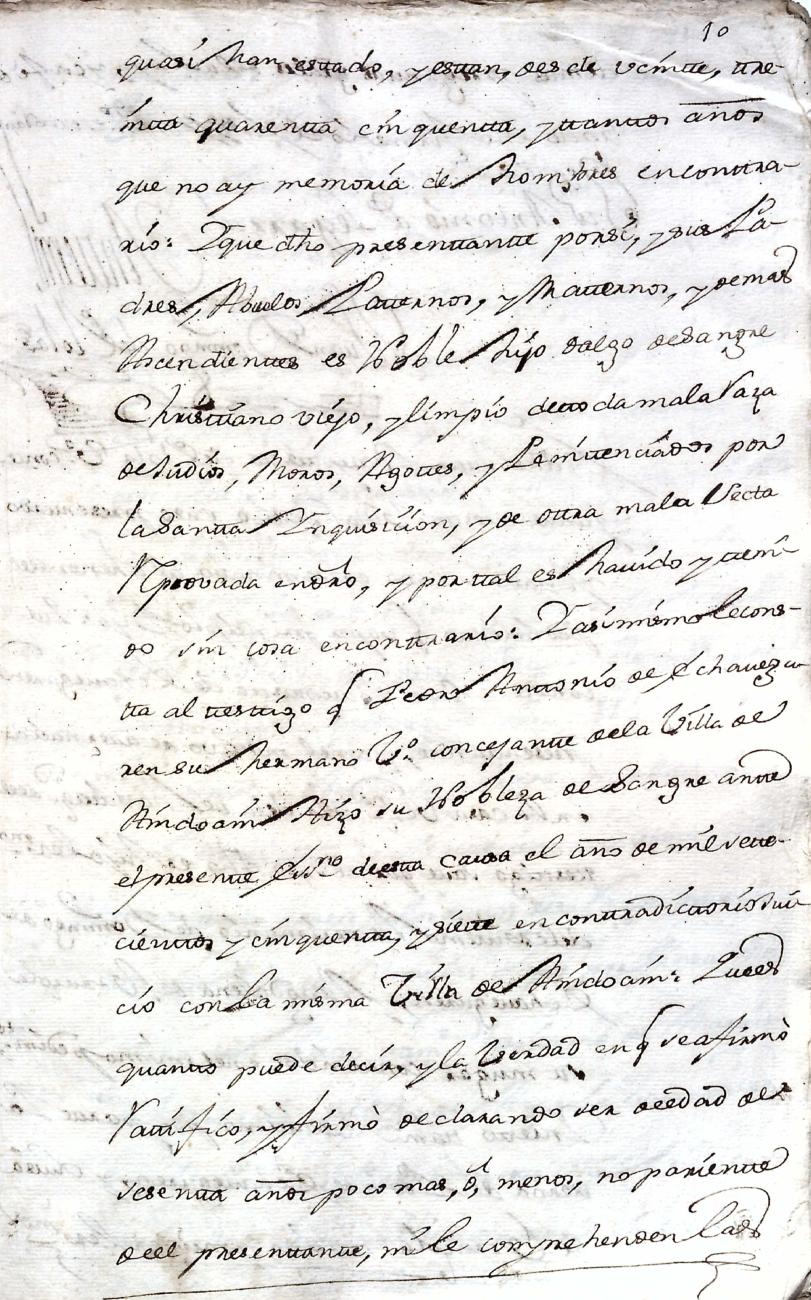 10
quasi han estado, y estan, desde veinte, tre-
inta quarenta cinquenta, y tantos años
que no ay memoria de hombres encontra-
rio: Yque dho presentante porsi, y sus Pa-
dres, Abuelos Paternos, y Maternos, y demas
Ascendientes es Noble hijo dalgo desangre
Christiano viejo, y limpio detoda mala raza
deJudios, Moros, Agotes, y Penitenciados por
laSanta Ynquisicion, y de otra mala Secta
Reprovada endro, y portal es havido y teni-
do sin cosa encontrario: Yasimismo le cons-
ta al testigo q Pedro Antonio de Echaveguu-
ren su hermano Vo. concejante dela Villa de
Andoain Hizo su Nobleza de Sangre ante
el presente Essno deesta causa el año de mil sete-
cientos y cinquenta, y siete encontradictorio Jui-
cio con la misma Villa de Andoain: Quees
quanto puede decir, y la Verdad en q se afirmò
ratifico, y firmò declarando ser deedad de
sesenta años poco mas, ò menos, no pariente
deel presentante, ni le comprehenden las